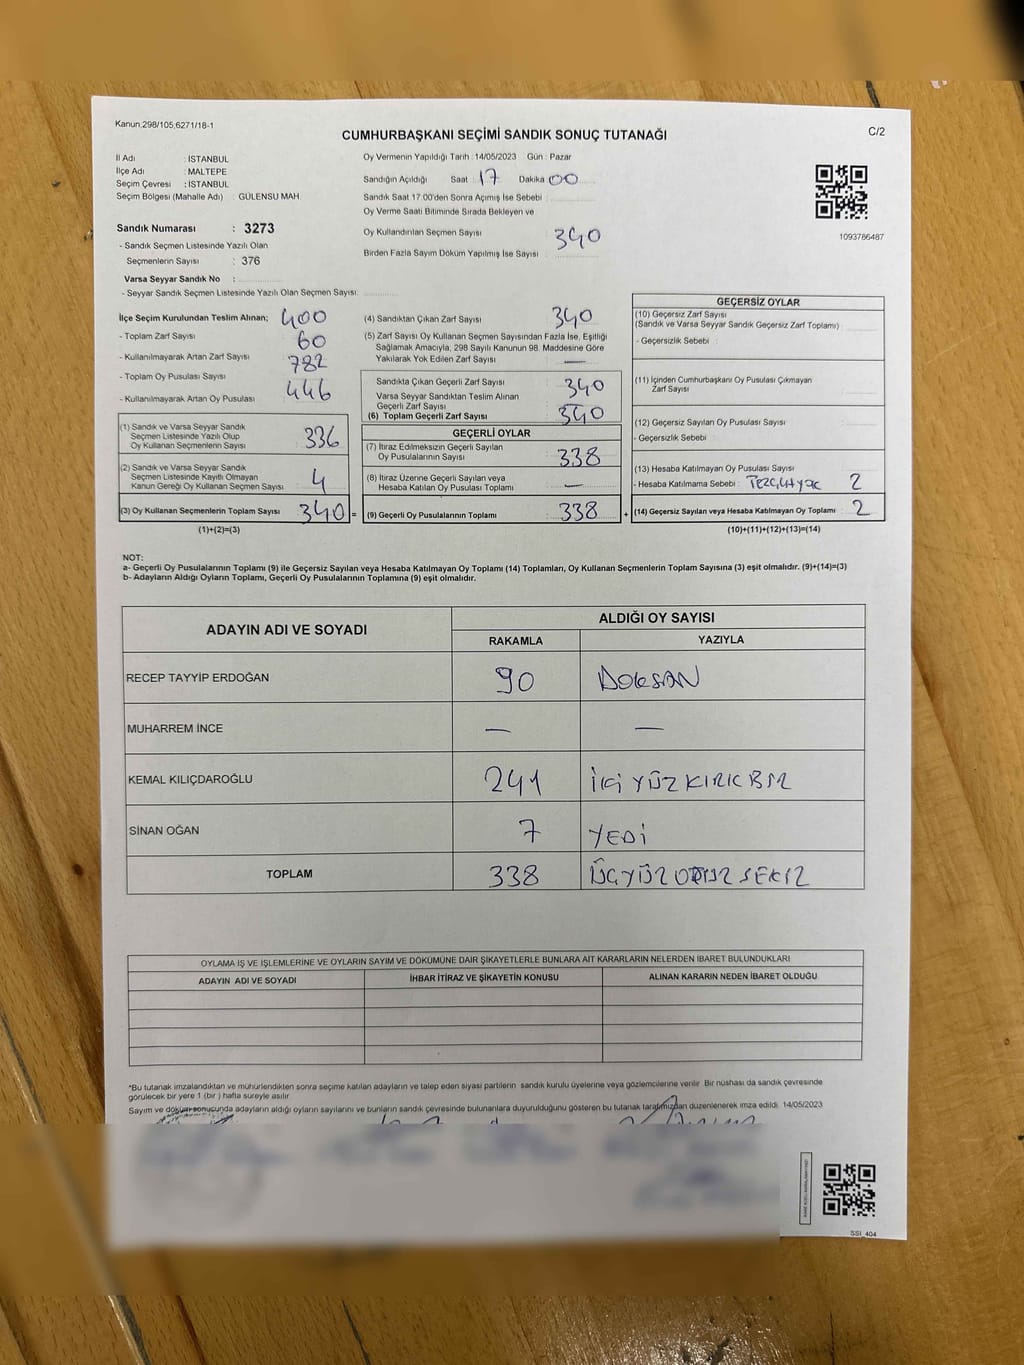 Kanun,298/105,6271/18-1
CUMHURBAŞKANI SEÇİMİ SANDIK SONUÇ TUTANAĞI
C/2
İl Adı : İSTANBUL
İlçe Adı : MALTEPE
Seçim Çevresi : İSTANBUL
Seçim Bölgesi (Mahalle Adı) : GÜLENSU MAH.
Sandık Numarası : 3273
- Sandık Seçmen Listesinde Yazılı Olan
Seçmenlerin Sayısı : 376
Varsa Seyyar Sandık No :
- Seyyar Sandık Seçmen Listesinde Yazılı Olan Seçmen Sayısı:
Oy Vermenin Yapıldığı Tarih :14/05/2023 Gün : Pazar
Sandığın Açıldığı Saat : 17 Dakika 00
Sandık Saat 17.00'den Sonra Açımış İse Sebebi :
Oy Verme Saati Bitiminde Sırada Bekleyen ve
Oy Kullandırılan Seçmen Sayısı : 340
Birden Fazla Sayım Döküm Yapılmış İse Sayısı :
1093786487
İlçe Seçim Kurulundan Teslim Alınan; 400
- Toplam Zarf Sayısı 60
- Kullanılmayarak Artan Zarf Sayısı 782
- Toplam Oy Pusulası Sayısı 446
- Kullanılmayarak Artan Oy Pusulası
(1) Sandık ve Varsa Seyyar Sandık
Seçmen Listesinde Yazılı Olup
Oy Kullanan Seçmenlerin Sayısı 336
(2) Sandık ve Varsa Seyyar Sandık
Seçmen Listesinde Kayıtlı Olmayan
Kanun Gereği Oy Kullanan Seçmen Sayısı 4
(3) Oy Kullanan Seçmenlerin Toplam Sayısı 340 =
(1)+(2)=(3)
(4) Sandıktan Çıkan Zarf Sayısı : 340
(5) Zarf Sayısı Oy Kullanan Seçmen Sayısından Fazla İse, Eşitliği
Sağlamak Amacıyla, 298 Sayılı Kanunun 98. Maddesine Göre
Yakılarak Yok Edilen Zarf Sayısı : —
Sandıkta Çıkan Geçerli Zarf Sayısı : 340
Varsa Seyyar Sandıktan Teslim Alınan
Geçerli Zarf Sayısı
(6) Toplam Geçerli Zarf Sayısı : 340
GEÇERLİ OYLAR
(7) İtiraz Edilmeksizin Geçerli Sayılan
Oy Pusulalarının Sayısı : 338
(8) İtiraz Üzerine Geçerli Sayılan veya
Hesaba Katılan Oy Pusulası Toplamı : —
(9) Geçerli Oy Pusulalarının Toplamı : 338 +
GEÇERSİZ OYLAR
(10) Geçersiz Zarf Sayısı
(Sandık ve Varsa Seyyar Sandık Geçersiz Zarf Toplamı) :
- Geçersizlik Sebebi :
(11) İçinden Cumhurbaşkanı Oy Pusulası Çıkmayan
Zarf Sayısı
(12) Geçersiz Sayılan Oy Pusulası Sayısı :
- Geçersizlik Sebebi :
(13) Hesaba Katılmayan Oy Pusulası Sayısı
- Hesaba Katılmama Sebebi : 2
(14) Geçersiz Sayılan veya Hesaba Katılmayan Oy Toplamı : 2
(10)+(11)+(12)+(13)=(14)
NOT:
a- Geçerli Oy Pusulalarının Toplamı (9) ile Geçersiz Sayılan veya Hesaba Katılmayan Oy Toplamı (14) Toplamları, Oy Kullanan Seçmenlerin Toplam Sayısına (3) eşit olmalıdır. (9)+(14)=(3)
b- Adayların Aldığı Oyların Toplamı, Geçerli Oy Pusulalarının Toplamına (9) eşit olmalıdır.
ADAYIN ADI VE SOYADI
ALDIĞI OY SAYISI
RAKAMLA YAZIYLA
RECEP TAYYİP ERDOĞAN 90 DOKSAN
MUHARREM İNCE — —
KEMAL KILIÇDAROĞLU 241 İKİ YÜZ KIRK BİR
SİNAN OĞAN 7 YEDİ
TOPLAM 338 ÜÇ YÜZ OTUZ SEKİZ
OYLAMA İŞ VE İŞLEMLERİNE VE OYLARIN SAYIM VE DÖKÜMÜNE DAİR ŞİKAYETLERLE BUNLARA AİT KARARLARIN NELERDEN İBARET BULUNDUKLARI
ADAYIN ADI VE SOYADI İHBAR İTİRAZ VE ŞİKAYETİN KONUSU ALINAN KARARIN NEDEN İBARET OLDUĞU
*Bu tutanak imzalandıktan ve mühürlendikten sonra seçime katılan adayların ve talep eden siyasi partilerin sandık kurulu üyelerine veya gözlemcilerine verilir. Bir nüshası da sandık çevresinde
görülecek bir yere 1 (bir ) hafta süreyle asılır.
Sayım ve döküm sonucunda adayların aldığı oyların sayılarını ve bunların sandık çevresinde bulunanlara duyurulduğunu gösteren bu tutanak tarafımızdan düzenlenerek imza edildi. 14/05/2023
SSI_404